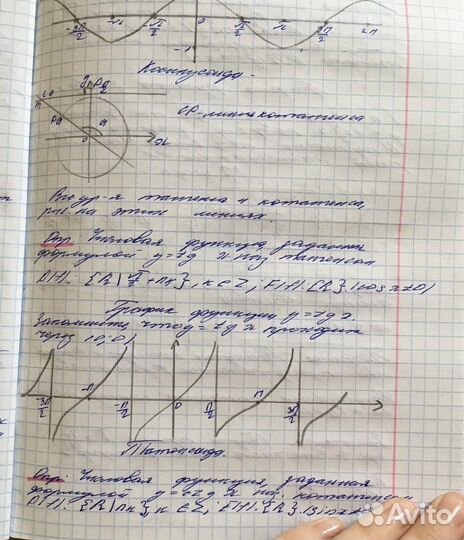 -3π/2 -π -π/2 0 π/2 π 3π/2 2π
-1
Косинусоида.
y
CP - линия котангенса
0 x
Все ур-я тангенса и котангенса,
на этих линиях.
Опр. Числовая функция, заданная
формулой y = tg x наз тангенсом
D(f): {R \ π/2 + πk}, k ∈ Z; E(f): {R}. (cos x ≠ 0)
График функции y = tg x.
Запомнить, что y = tg x проходит
через (0; 0)
-3π/2 -π -π/2 0 π/2 π 3π/2
Опр: Числовая функция, заданная
формулой y = ctg x наз. котангенсом
D(f): {R \ πk}, k ∈ Z; E(f): {R}.
Avito